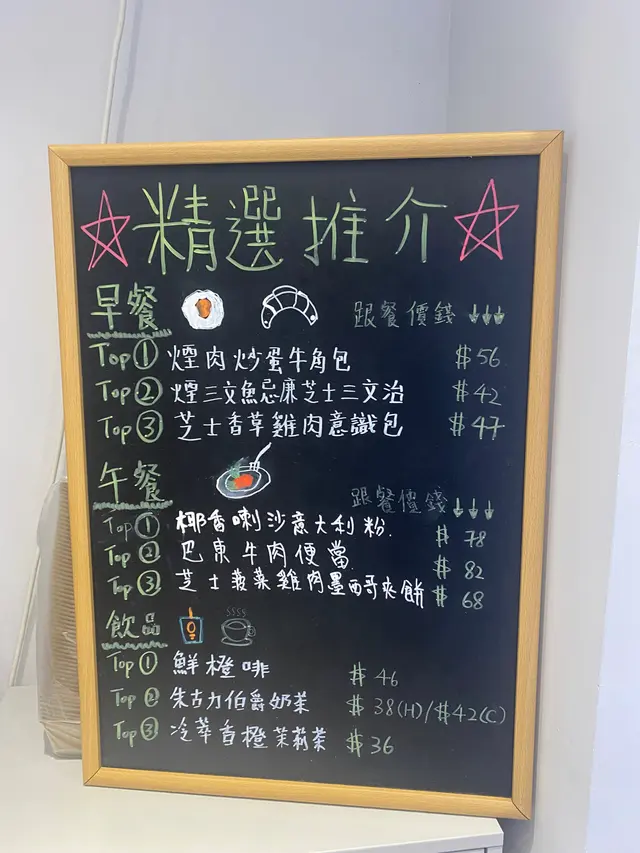 精選推介
早餐 跟餐價錢
Top① 煙肉炒蛋牛角包 $56
Top② 煙三文魚忌廉芝士三文治 $42
Top③ 芝士香草雞肉意識包 $47
午餐 跟餐價錢
Top① 椰香喇沙意大利粉 $78
Top② 巴東牛肉便當 $82
Top③ 芝士菠菜雞肉墨西哥夾餅 $68
飲品
Top① 鮮橙啡 $46
Top② 朱古力伯爵奶茶 $38(H)/$42(C)
Top③ 冷萃香橙茉莉茶 $36